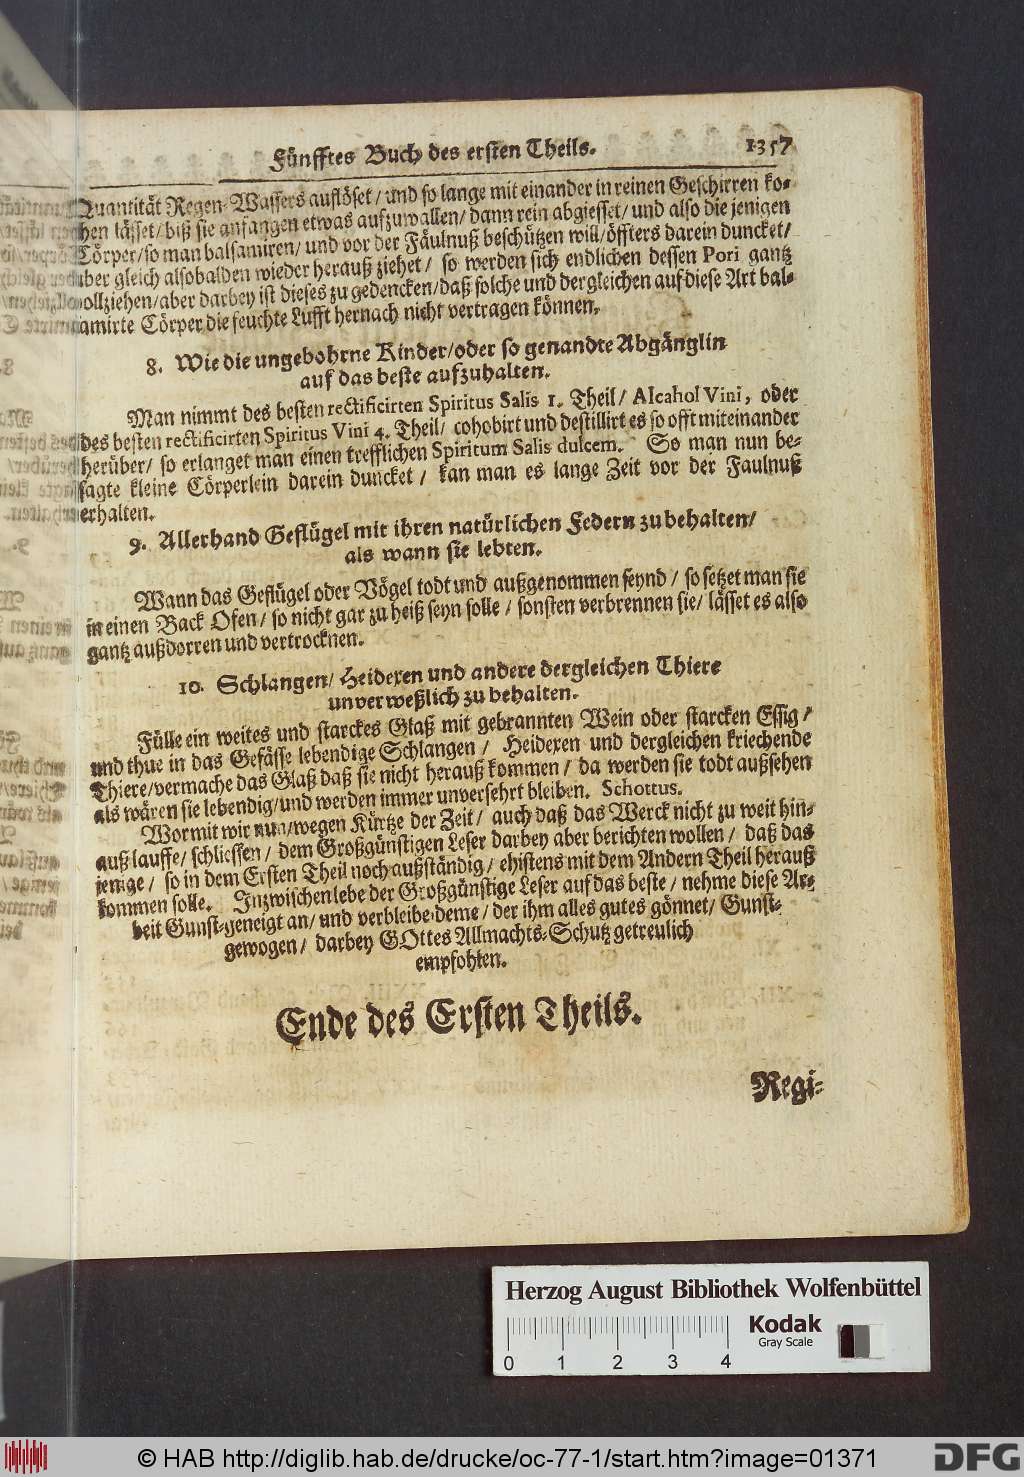 Fünfftes Buch des ersten Theils. 1357
Quantität Regen-Wassers auflöset / und so lange mit einander in reinen Geschirren ko-
hen lässet / biß sie anfangen etwas aufzuwallen / dann rein abgiesset / und also die jenigen
Cörper / so man balsamiren / und vor der Fäulnuß beschützen will / öffters darein duncket /
aber gleich alsobalden wieder herauß ziehet / so werden sich endlichen dessen Pori gantz
vollziehen / aber darbey ist dieses zu gedencken / daß solche und dergleichen auf diese Art bal-
amirte Cörper die feuchte Lufft hernach nicht vertragen können.
8. Wie die ungebohrne Kinder / oder so genandte Abgänglin
auf das beste aufzuhalten.
Man nimmt des besten rectificirten Spiritus Salis 1. Theil / Alcahol Vini, oder
des besten rectificirten Spiritus Vini 4. Theil / cohobirt und destillirt es so offt miteinander
herüber / so erlanget man einen trefflichen Spiritum Salis dulcem. So man nun be-
sagte kleine Cörperlein darein duncket / kan man es lange Zeit vor der Faulnuß
erhalten.
9. Allerhand Geflügel mit ihren natürlichen Federn zu behalten /
als wann sie lebten.
Wann das Geflügel oder Vögel todt und außgenommen seynd / so setzet man sie
in einen Back Ofen / so nicht gar zu heiß seyn solle / sonsten verbrennen sie / lässet es also
gantz außdorren und vertrocknen.
10. Schlangen / Heidexen und andere dergleichen Thiere
unverweßlich zu behalten.
Fülle ein weites und starckes Glaß mit gebrannten Wein oder starcken Essig /
und thue in das Gefässe lebendige Schlangen / Heidexen und dergleichen kriechende
Thiere / vermache das Glaß daß sie nicht herauß kommen / da werden sie todt außsehen
als wären sie lebendig / und werden immer unversehrt bleiben. Schottus.
Wormit wir nun / wegen Kürtze der Zeit / auch daß das Werck nicht zu weit hin-
auß lauffe / schliessen / dem Großgünstigen Leser darbey aber berichten wollen / daß das
jenige / so in dem Ersten Theil noch außständig / ehistens mit dem Andern Theil herauß
kommen solle. Inzwischen lebe der Großgünstige Leser auf das beste / nehme diese Ar-
beit Gunst-geneigt an / und verbleibe deme / der ihm alles gutes gönnet / Gunst-
gewogen / darbey GOttes Allmachts-Schutz getreulich
empfohlen.
Ende des Ersten Theils.
Regi-
Herzog August Bibliothek Wolfenbüttel
Kodak
Gray Scale
0 1 2 3 4
© HAB http://diglib.hab.de/drucke/oc-77-1/start.htm?image=01371
DFG